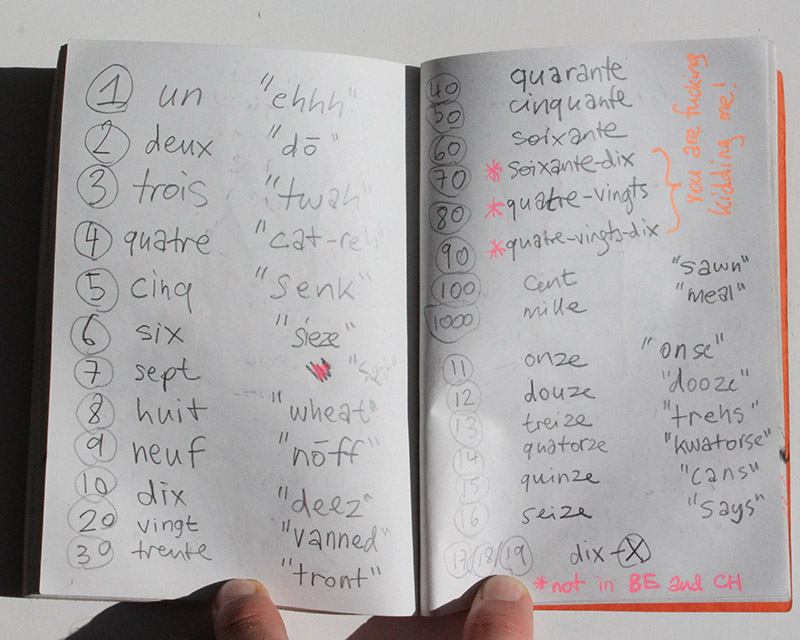 1 un "ehhh"
2 deux "dō"
3 trois "twah"
4 quatre "cat-reh"
5 cinq "Senk"
6 six "sieze"
7 sept
8 huit "wheat"
9 neuf "nōff"
10 dix "deez"
20 vingt "vanned"
30 trente "tront"
40 quarante
50 cinquante
60 soixante
70 * soixante-dix
80 * quatre-vingts
90 * quatre-vingts-dix
You are fucking
kidding me!
100 cent "sawn"
1000 mille "meal"
11 onze "onse"
12 douze "dooze"
13 treize "trehs"
14 quatorze "kwatorse"
15 quinze "cans"
16 seize "says"
17/18/19 dix-X
*not in BE and CH